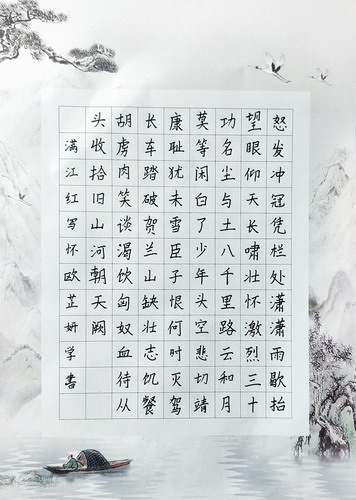 怒发冲冠凭栏处潇潇雨歇抬
望眼仰天长啸壮怀激烈三十
功名尘与土八千里路云和月
莫等闲白了少年头空悲切靖
康耻犹未雪臣子恨何时灭驾
长车踏破贺兰山缺壮志饥餐
胡虏肉笑谈渴饮匈奴血待从
头收拾旧山河朝天阙
满江红写怀欧芷妍学书